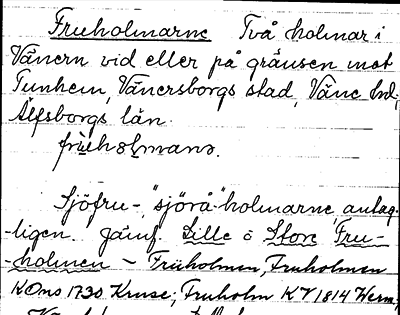 Fruholmarne Två holmar i
Vänern vid eller på gränsen mot
Tunhem, Vänersborgs stad, Väne hd,
Älfsborgs län.
Sjöfru-, "sjörå"-holmarne, antag-
-ligen. Jämf. Lille o Store Fru-
-holmen - Früholmen, Fruholmen
KOms 1730 Kruse; Fruholm KV 1814 Herm;